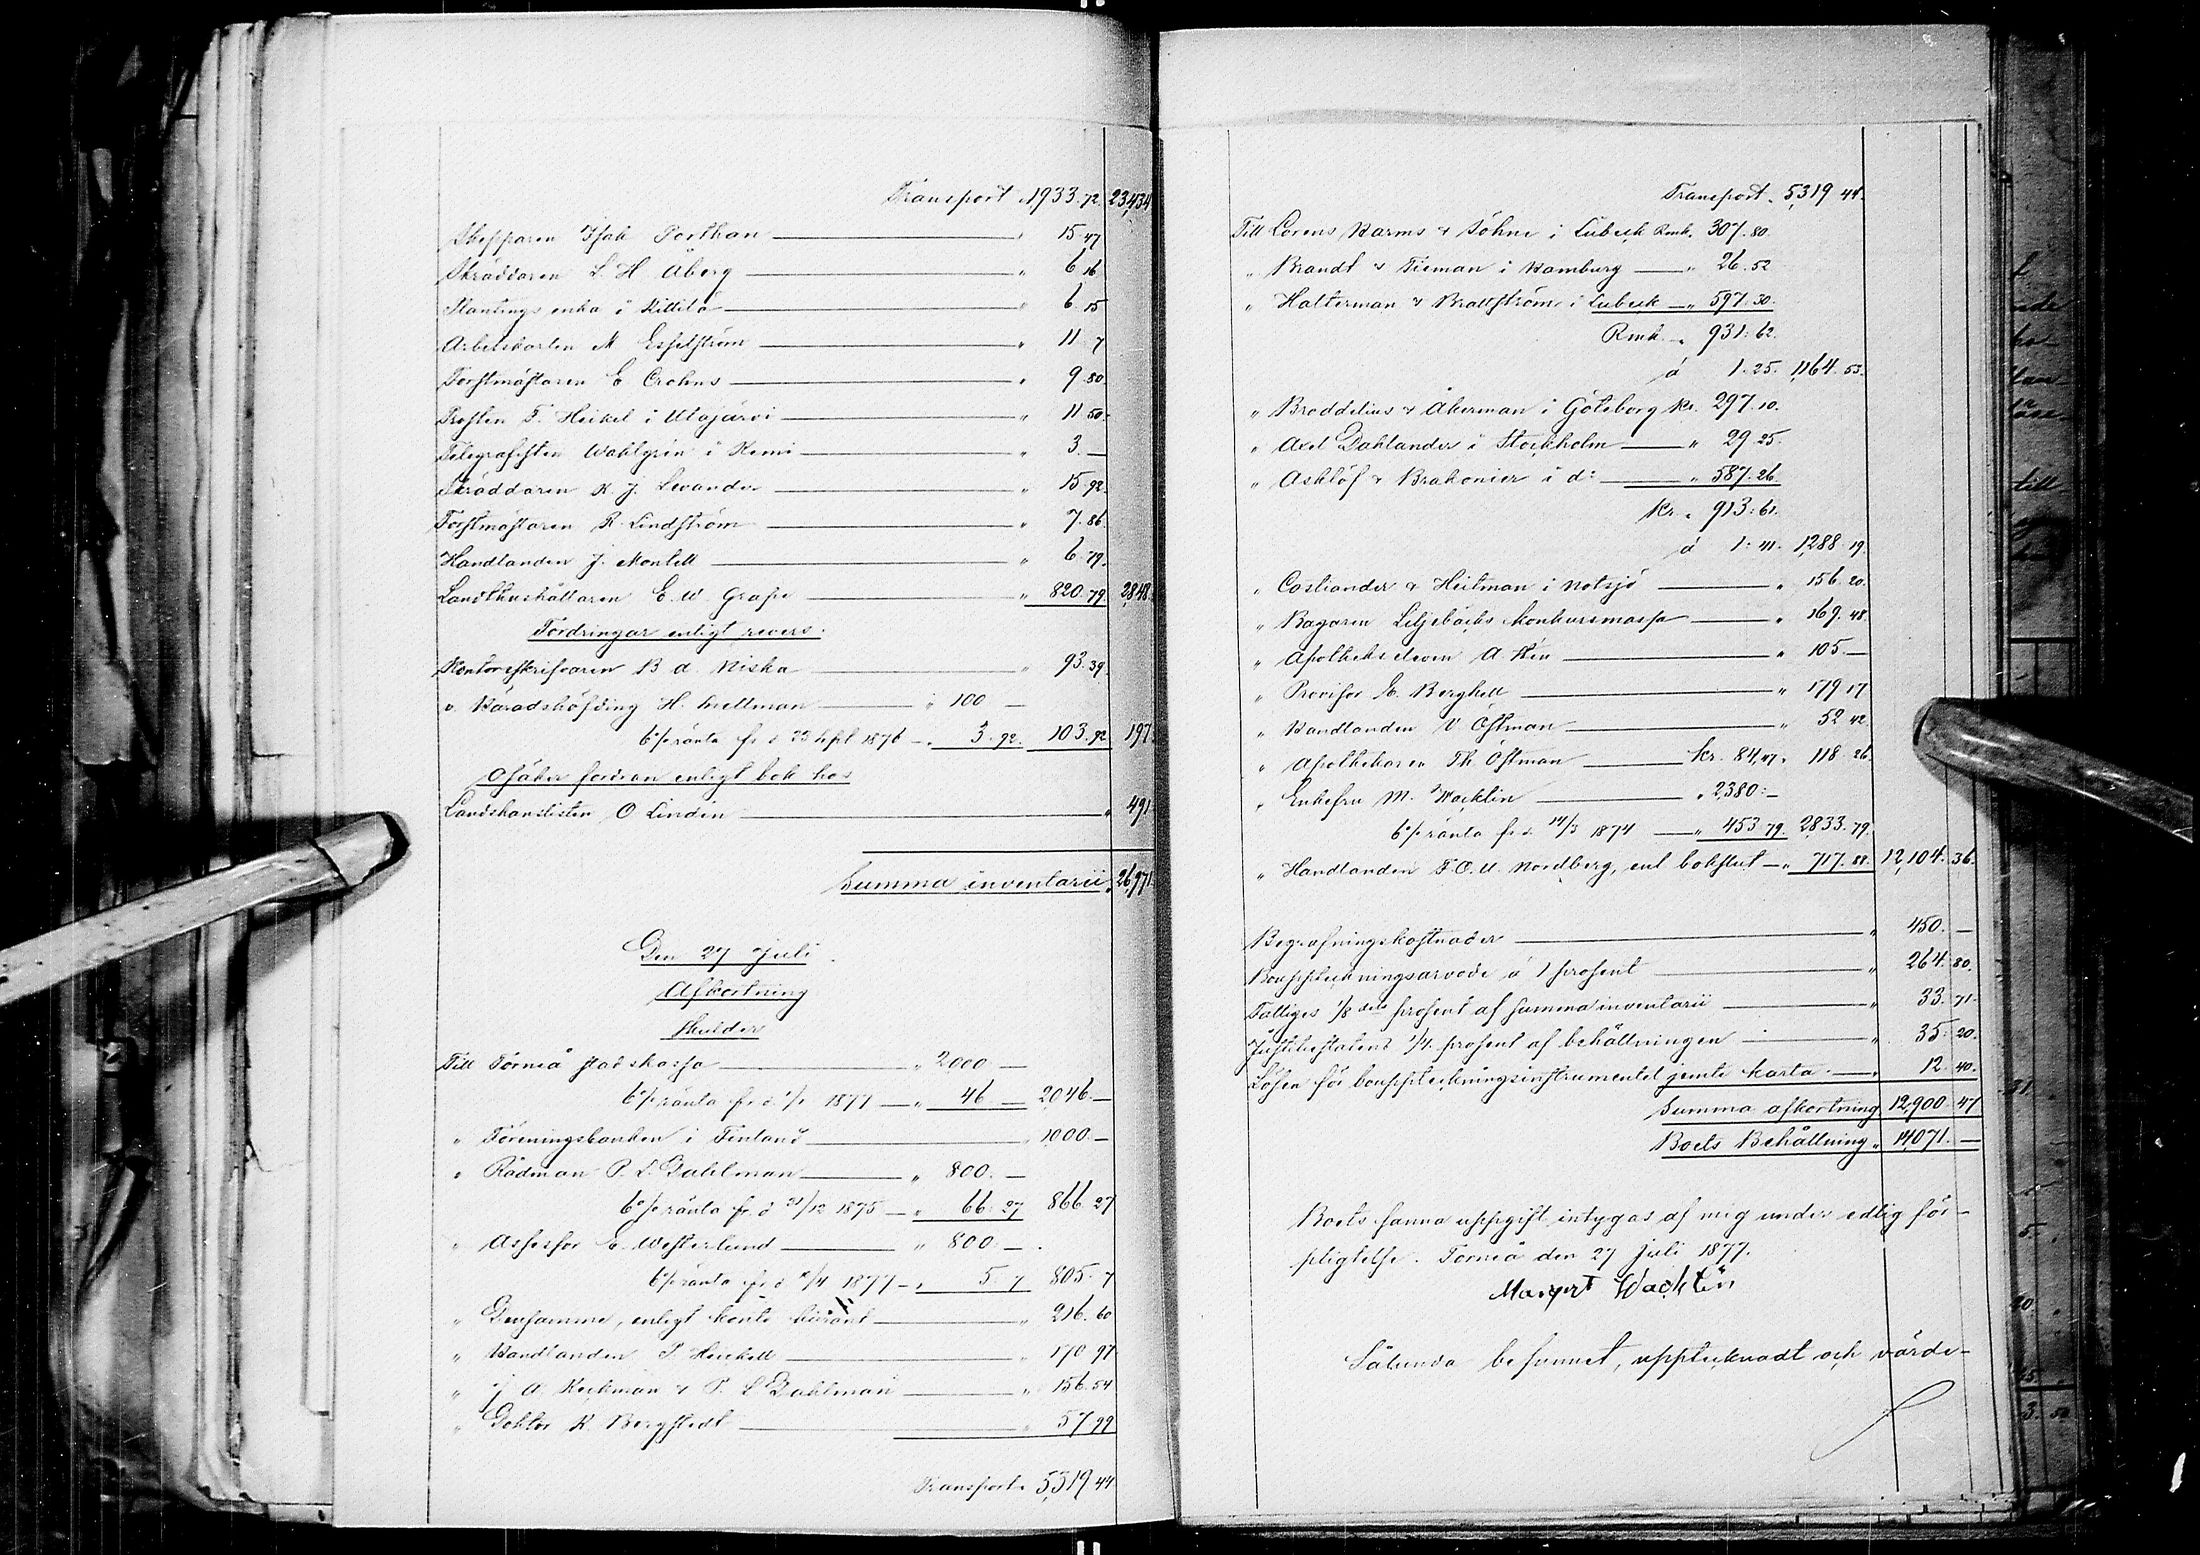 Transport " 1933.72. 23,434
Skepparen Isak Porthan " 15.47
Skräddaren L. H. Åberg " 6.16
enka i Kittilä " 6.15
Arbetskarlen M. Esselström " 11.7
Forstmästaren E. Crohns " 9.80.
Prosten F. Heikel i Utajärvi " 11.50.
Telegrafisten Wahlgrén i Kemi " 3.—
Skräddaren K. J. Levander " 15.92.
Forstmästaren R. Lindström " 7.86.
Handlanden J. Montell " 6.79.
Landthushållaren E. W. Grape " 820.79. 2,848.
Fordringar enligt revers.
Kontorsskrifvaren B. A. Niska " 93.39.
v. Häradshöfding H. Mellman " 100 —
6% ränta fr. d. 23 Sept 1876 — " 3.92. 103.92 197.
Osäker fordran enligt bok hos
Landskanslisten O. Lindén " 491
Summa inventarii " 26,971.
Den 27 Juli.
Afkortning
Skulder
Till Torneå stadskassa " 2000 —
6% ränta fr. d. 1877 — " 46 — 2,046.—
" Föreningsbanken i Finland " 1000.—
" Rådman P. L. Dahlman " 800.—
6% ränta fr. d. 31/12 1875 — " 66.27 866.27
" Assessor E. Westerlund " 800.—
6% ränta fr. d. 1877 — " 5.7 805.7
" Densamme, enligt konto " 216.60
" Handlanden P. Heikell " 170.97
" J. A. Keckman & P. L. Dahlman " 156.54
" Doktor K. Bergstedt " 57.99
Transport " 5,319 44
Transport " 5,319 44.
Till Lorens Harms & Söhne i Lübeck Rmk. 307.80
" Brandt & Tieman i Hamburg " 26.52
" Halterman & Brattström i Lübeck " 597.30.
Rmk. " 931:62.
á 1.25. 1,164.53.
" Broddelius & Åkerman i Göteborg Kr. 297.10.
" Axel Dahlander i Stockholm " 29.25.
" Asklöf & Brakonier i d:o " 587.26
Kr. " 913:61.
á 1:41. 1,288.19.
" Costiander & Heitman i Notsjö " 156.20.
" Bagaren Liljebäcks konkursmassa " 169.48.
" Apothekseleven A. " 105.—
" Provisor E. Berghell " 179.17
" Handlanden V. Östman " 52.42
" Apothekaren Th. Östman Kr. 84,47. " 118.26
" Enkefru M. Wacklin " 2,380:—
6% ränta fr. d. 14/3 1874 — " 453.79. 2,833.79.
" Handlanden F. O. U. Nordberg, enl. bokslut — " 717.88. 12,104.36.
Begrafningskostnader " 450.—
Bouppteckningsarvode á 1 prosent " 264.80.
Fattiges 1/8 dels prosent af summa inventarii " 33.71.
Justitiestatens 1/4. prosent af behållningen " 35.20.
Lösen för bouppteckningsinstrumentet jemte karta. " 12.40.
Summa afkortning 12,900.47
Boets Behållning " 14,071.—
Boets sanna uppgift intygas af mig under edlig för-
pligtelse. Torneå den 27 Juli 1877.
Margret Wacklin
Sålunda befunnet, upptecknadt och värde-